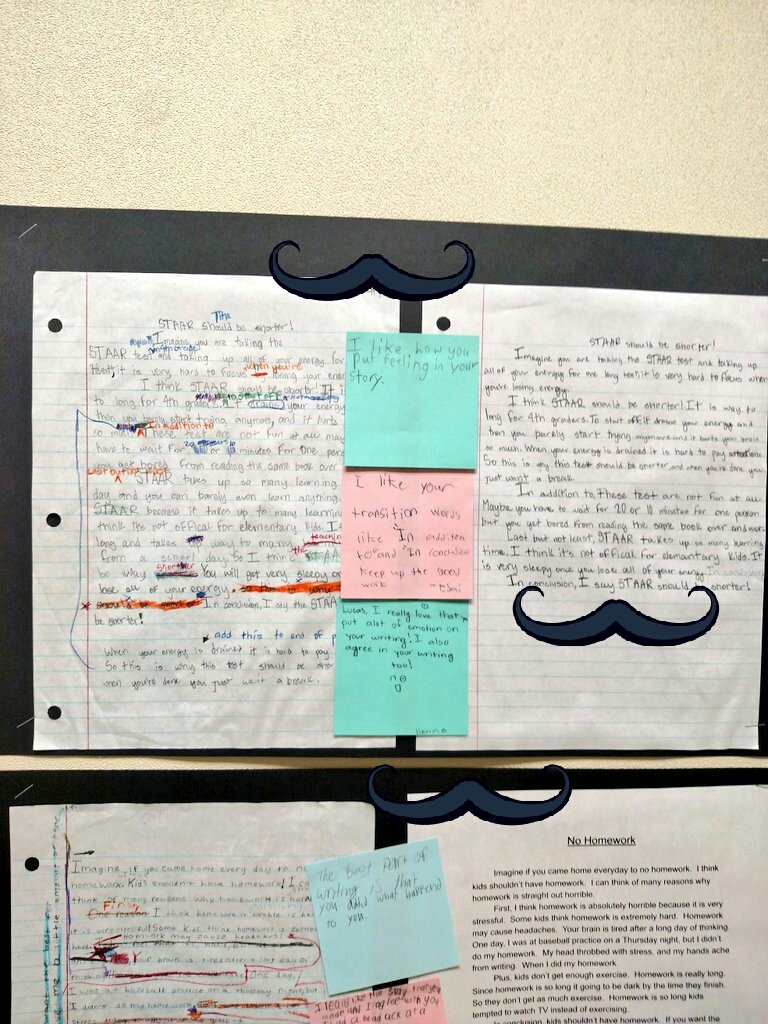 Title
STAAR should be shorter!
Imagine you are taking the
STAAR test and taking up all of your energy for
test, it is very hard to focus when you're losing your ener
I think STAAR should be shorter! It
to long for 4th graders. your energy
then you barely start trying anymore, and it hurts
In addition to
so much. These test are not fun at all may
have to wait for 20 or 10 minutes for one pers
you get bored from reading the same book over
STAAR takes up so many learning
day and you can barely even learn anything.
STAAR because it takes up to many learning
think it's not offical for elementary kids. It
long and takes way to many
from a school day. So I think
be way shorter You will get very sleepy o
lose all of your energy.
In conclusion, I say the STAAR
be shorter!
add this to end of p
When your energy is drained it is hard to pay
So this is why this test should be shor
when you're done you just want a break.
I like, how you
put feeling in your
story.
I like your
transition words
like "In addition
to" and "In conclusion
keep up the good
work
Lucas, I really love that
put alot of emotion on
your writing! I also
agree in your writing
too!
Hanna
STAAR should be shorter!
Imagine you are taking the STAAR test and taking up
all of your energy for one long test, it is very hard to focus when
you're losing energy.
I think STAAR should be shorter! It is way to
long for 4th graders. To start off it drains your energy and
than you barely start trying anymore and it hurts your brain
so much. When your energy is drained it is hard to pay attention.
So this is why this test should be shorter, and when you're done you
just want a break.
In addition to, These test are not fun at all.
Maybe you have to wait for 20 or 10 minutes for one person
but you get bored from reading the same book over and over.
Last but not least, STAAR takes up so many learning
time. I think it's not offical for elemantary kids. It
is very sleepy once you lose all of your energy.
In conclusion, I say STAAR should be shorter!
Imagine, if you came home every day to no
homework. Kids shouldn't have homework! I c
think of many reasons why homework is horr
First
One reason I think homework is horrible is bec
it is very stressful! Some kids think homework is
Homework may cause headaches!
Your brain is tired after a long day of
thinking One day,
I was at baseball practice on a thursday night, but
I didn't do my homework
The best part of
writing is that
you did what happened
to you.
I really like the story that you
made and I agree with you
No Homework
Imagine if you came home everyday to no homework. I think
kids shouldn't have homework. I can think of many reasons why
homework is straight out horrible.
First, I think homework is absolutely horrible because it is very
stressful. Some kids think homework is extremely hard. Homework
may cause headaches. Your brain is tired after a long day of thinking.
One day, I was at baseball practice on a Thursday night, but I didn't
do my homework. My head throbbed with stress, and my hands ache
from writing. When I did my homework.
Plus, kids don't get enough exercise. Homework is really long.
Since homework is so long it going to be dark by the time they finish.
So they don't get as much exercise. Homework is so long kids
tempted to watch TV instead of exercising.
In conclusion, kids shouldn't have homework. If you want the